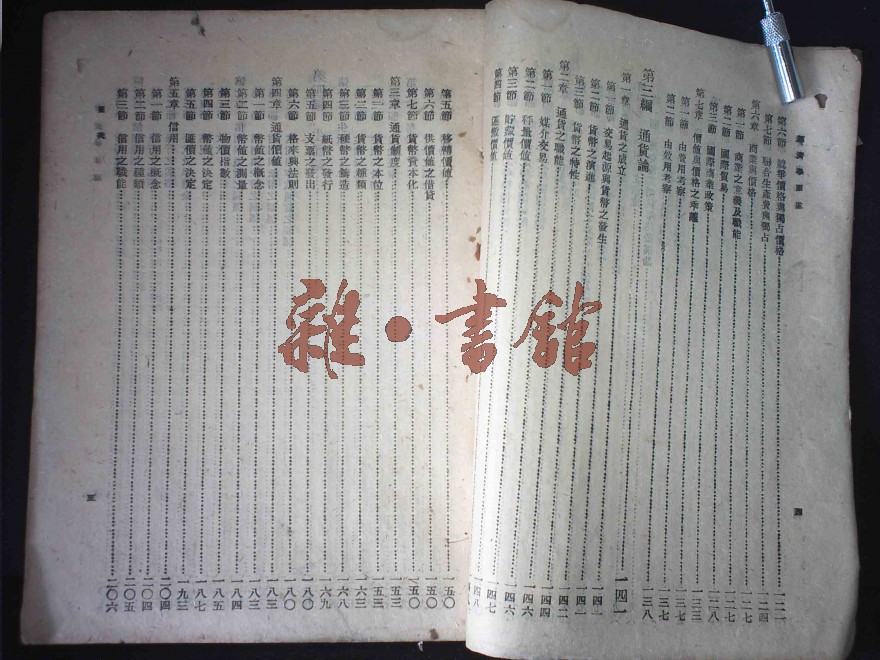 經濟學原論
第六節 競爭價格與獨占價格 一二一
第七節 聯合生產費與獨占 一二四
第六章 商業與價格 一二七
第一節 商業之意義及職能 一二七
第二節 國際貿易
第三節 國際商業政策 一二八
第七章 價値與價格之乖離 一三三
第一節 由費用考察 一三七
第二節 由效用考察 一三八
第三編 通貨論 一四一
第一章 通貨之成立 一四一
第一節 交易起源與貨幣之發生 一四一
第二節 貨幣之演進
第三節 貨幣之特性
第二章 通貨之職能 一四二
第一節 媒介交易 一四四
第二節 秤量價値 一四六
第三節 貯藏價値 一四七
第四節 匯撥價値 一四八
四
第五節 移轉價値 一五〇
第六節 供價値之借貸 一五〇
第七節 貨幣資本化 一五〇
第三章 通貨制度 一五三
第一節 貨幣之本位 一五三
第二節 貨幣之種類 一六三
第三節 硬幣之鑄造 一六八
第四節 紙幣之發行 一六九
第五節 支票之發出 一八〇
第六節 格來興法則 一八〇
第四章 通貨價値 一八三
第一節 幣値之概念 一八三
第二節 幣値之測量 一八四
第三節 物價指數 一八五
第四節 幣値之決定 一八七
第五節 匯價之決定 一九三
第五章 信用 二〇四
第一節 信用之概念 二〇四
第二節 信用之種類 二〇五
第三節 信用之職能 二〇六
五
雜·書館